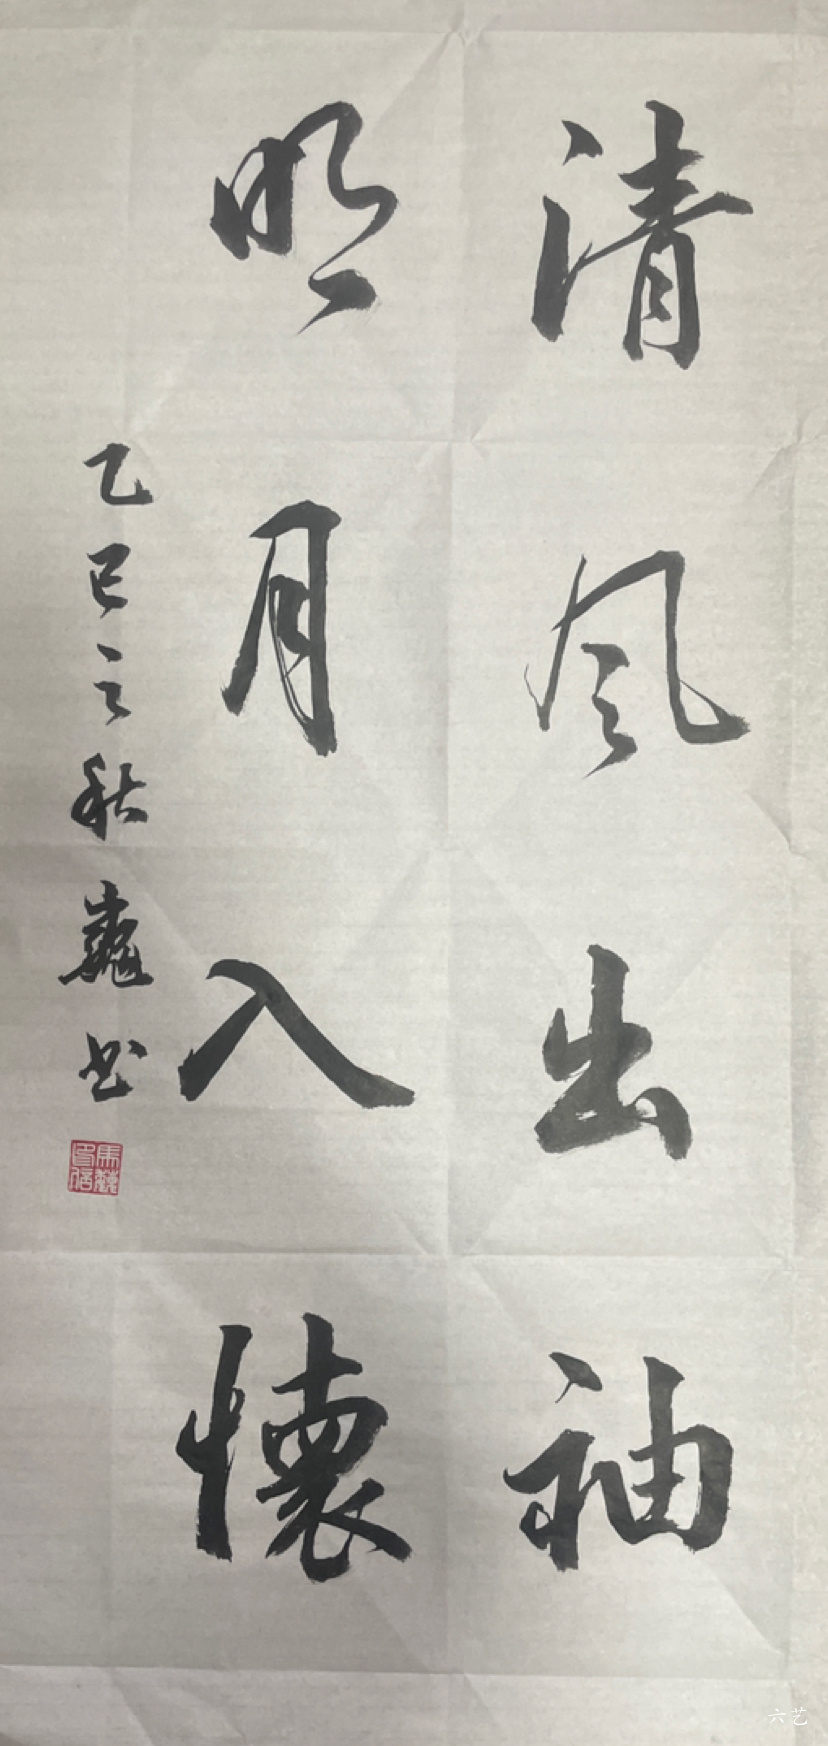 清风出袖
明月入懷
乙巳之秋巍书
六艺